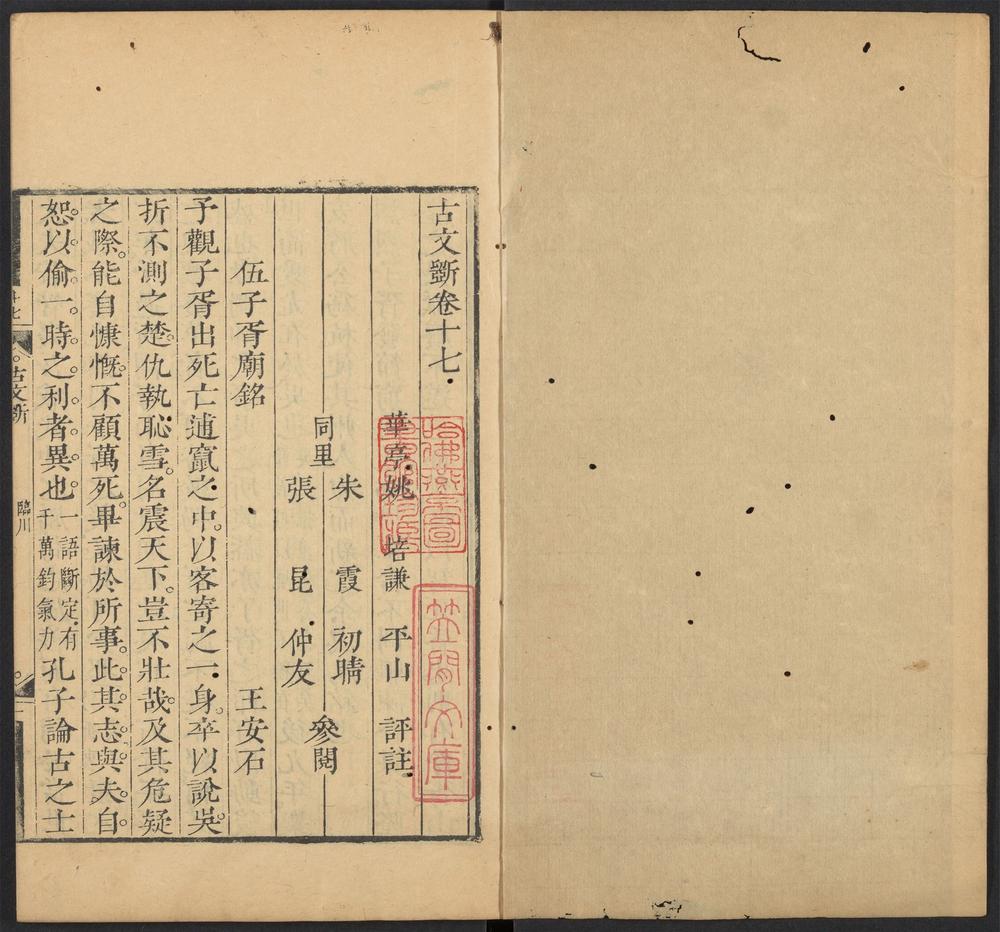 古文斲卷十七
華亭姚培謙平山評註
同里
朱霞初晴
張昆仲友
參閱
伍子胥廟銘
王安石
予觀子胥出死亡逋竄之中。以客寄之一身。卒以說吳。
折不測之楚。仇執恥雪。名震天下。豈不壯哉。及其危疑
之際。能自慷慨不顧萬死。畢諫於所事。此其志與夫自
恕以偷一時之利者異也。
一語斷定有
千萬鈞氣力
孔子論古之士
十七
古文斲
臨川
哈佛燕京圖
書館珍藏